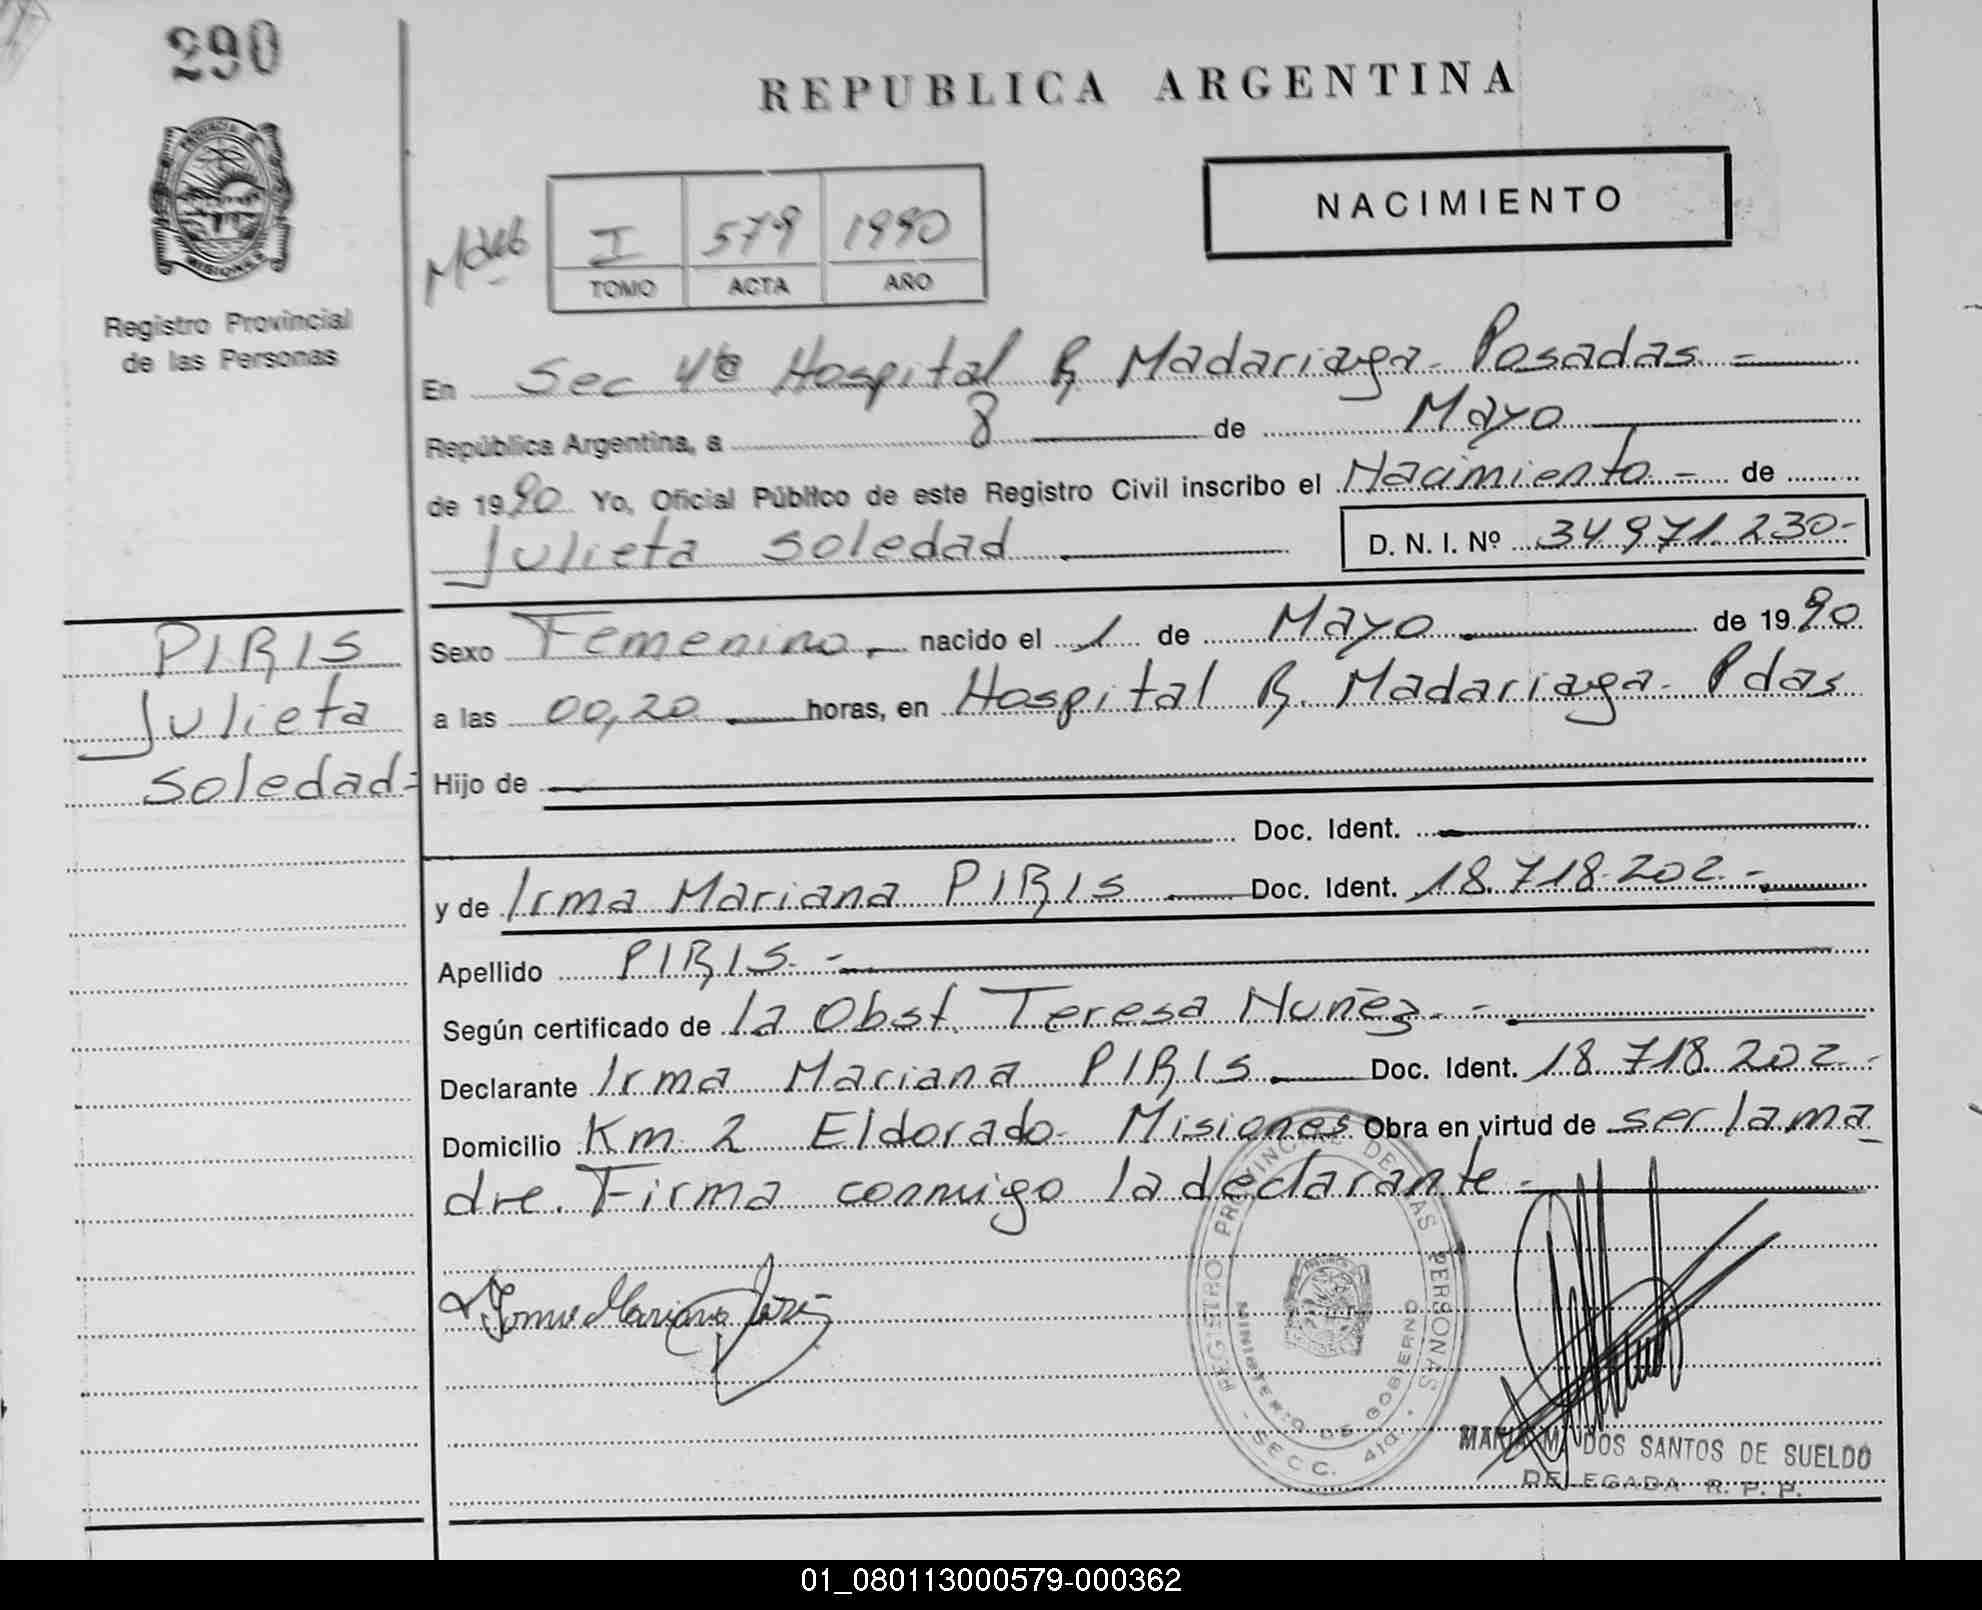 290
REPUBLICA ARGENTINA
NACIMIENTO
I 579 1990
TOMO ACTA AÑO
PROVINCIA DE MISIONES
Registro Provincial
de las Personas
En Sec 4ta Hospital R. Madariaga - Posadas -
República Argentina, a 8 de Mayo
de 1990 Yo, Oficial Público de este Registro Civil inscribo el Nacimiento - de
Julieta Soledad D. N. I. Nº 34971.230-
PIRIS
Julieta
Soledad=
Sexo Femenino nacido el 1 de Mayo de 1990
a las 00,20 horas, en Hospital R. Madariaga - Pdas
Hijo de
Doc. Ident.
y de Irma Mariana PIRIS Doc. Ident. 18.718.202.-
Apellido PIRIS. -
Según certificado de la Obst. Teresa Nuñez. -
Declarante Irma Mariana PIRIS Doc. Ident. 18.718.202.-
Domicilio Km 2 Eldorado - Misiones Obra en virtud de ser la ma
dre. Firma conmigo la declarante -
REGISTRO PROVINCIAL DE LAS PERSONAS
MINISTERIO DE GOBIERNO
- SECC. 4ta. -
MARIA M. DOS SANTOS DE SUELDO
DELEGADA R. P. P.
01_080113000579-000362